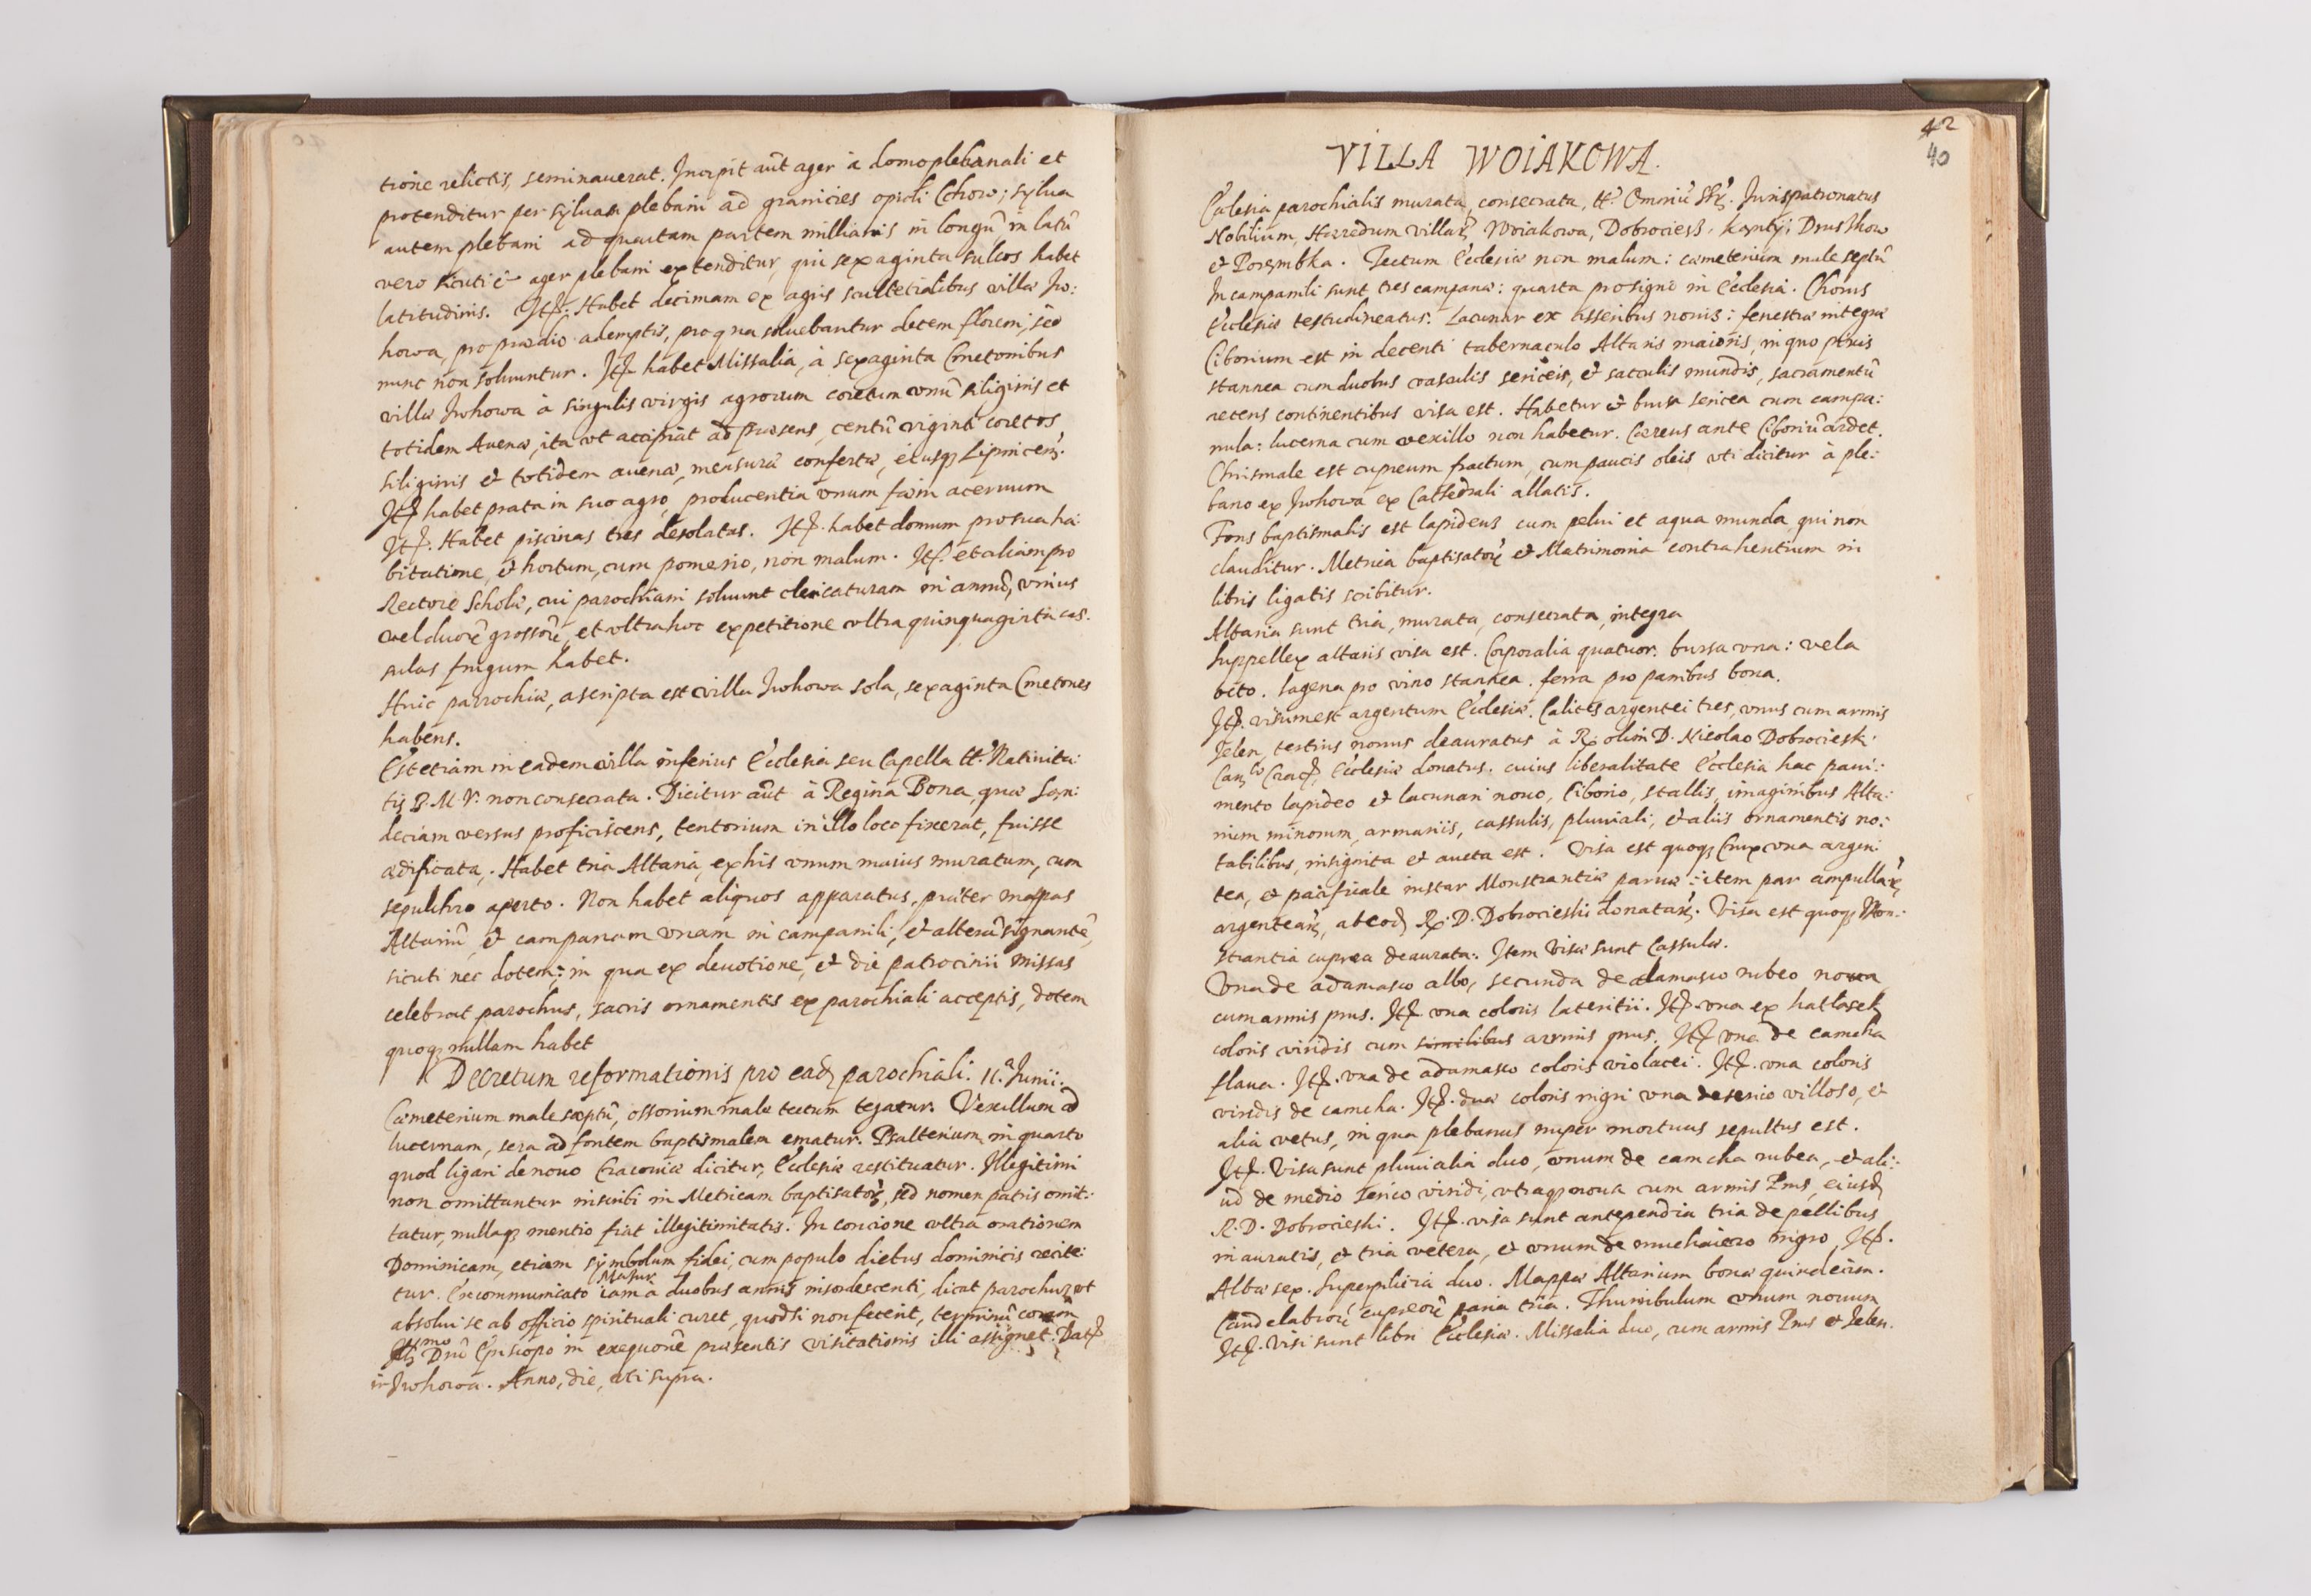 tione relictis, seminauerat. Incipit aut̃ ager à domo plebanali et
protenditur per syluam plebani ad granicies opidi Cchow; sylua
autem plebani ad quartam partem milliaris in longũ, in latũ
vero sicuti ẽ ager plebani extenditur, qui sexaginta sulcos habet
latitudinis. Itẽ: Habet decimam ex agris scultetialibus villæ Iw:
kowa, pro prædio ademptis, pro qua soluebantur decem floreni, sed
nunc non soluuntur. Itẽ habet Missalia, à sexaginta Cmetonibus
villæ Iwkowa à singulis virgis agrorum coretum vnũ siliginis et
totidem Auenæ, ita vt accipiat ad præsens, centũ viginti coretos
siliginis et totidem auenæ, mensuræ confertæ, eiusq₃ Lipnicen̄.
Itẽ habet prata in suo agro, producentia vnum fœni aceruum
Itẽ. Habet piscinas tres desolatas. Itẽ. habet domum pro sua ha:
bitatione, et hortum, cum pomerio, non malum. Itẽ. et aliam pro
Rectore Scholæ, cui parochiani soluunt clericaturam in annũ, vnius
vel duorũ grossorũ, et vltra hoc ex petitione vltra quinquaginta cas:
sulas frugum habet.
Huic parrochiæ, ascripta est villa Iwkowa sola, sexaginta Cmetones
habens.
Est etiam in eadem villa inferius Ecclesia seu Capella tt. Natiuita:
tis B. M. V. non consecrata. Dicitur aut̃ à Regina Bona, quæ San:
deciam versus proficiscens, tentorium in illo loco fixerat, fuisse
ædificata. Habet tria Altaria, ex his vnum maius muratum, cum
sepulchro aperto. Non habet aliquos apparatus, præter mappas
Altariũ, et campanam vnam in campanili, et alterã signantẽ,
sicuti nec dotem; in qua ex deuotione, et die patrocinii missas
celebrat parochus, sacris ornamentis ex parochiali acceptis, dotem
quoq₃ nullam habet
Decretum reformationis pro ead₃ parochiali. 11.ª Iunii.
Cæmeterium male sæptũ, ossorium male tectum tegatur. Vexillum ad
lucernam, sera ad fontem baptismalem ematur. Psalterium in quarto
quod ligari de nouo Cracouiæ dicitur, Ecclesiæ restituatur. Illegitimi
non omittantur inscribi in Metricam baptisator̃, sed nomen patris omit:
tatur, nullaq₃ mentio fiat illegitimitatis. In concione vltra orationem
Dominicam, etiam symbolum fidei, cum populo diebus dominicis recite:
tur. Excommunicato Mazur iam a duobus annis insordescenti, dicat parochus, vt
absolui se ab officio spirituali curet, quod si non fecerit, terminũ coram
Illmo Dnõ Episcopo in exequũõe præsentis visitationis illi assignet. Datẽ
in Iwkowa. Anno, die, vti supra.
42
40
VILLA WOIAKOWA.
Ecclesia parochialis murata, consecrata, tt. Omniũ SSr̃. Iurispatronatus
Nobilium, Hæredum villar̃, Woiakowa, Dobrociesz, Kąnty, Druszkow
et Porąmbka. Tectum Ecclesiæ non malum: cæmeterium male septũ
In campanili sunt tres campanæ: quarta pro signo in Ecclesia. Chorus
Ecclesiæ testudineatus. Lacunar ex asseribus nouis: fenestræ integræ
Ciborium est in decenti tabernaculo Altaris maioris, in quo pixis
stannea cum duobus vasculis sericeis, et sacculis mundis, sacramentũ
recens continentibus visa est. Habetur et bursa sericea cum campa:
nula: lucerna cum vexillo non habetur. Cæreus ante Ciboriũ ardet.
Chrismale est cupreum fractum, cum paucis oleis vti dicitur à ple:
bano ex Iwkowa ex Cathedrali allatis.
Fons baptismalis est lapideus cum pelui et aqua munda, qui non
clauditur. Metrica baptisator̃ et Matrimonia contrahentium in
libris ligatis scribitur.
Altaria sunt tria, murata, consecrata, integra
Suppellex altaris visa est. Corporalia quatuor. bursa vna: vela
octo. Lagena pro vino stannea. ferra pro panibus bona.
Itẽ. visum est argentum Ecclesiæ. Calices argentei tres, vnus cum armis
Jelen, tertius nouus deauratus à R₃ olim D. Nicolao Dobrociesk:
Can₃co Cracẽ, Ecclesiæ donatus. cuius liberalitate Ecclesia hæc paui:
mento lapideo et lacunari nouo, Ciborio, stallis, imaginibus Alta:
rium minorum, armariis, cassulis, pluuiali, et aliis ornamentis no:
tabilibus, insignita et aucta est. Visa est quoq₃ Crux vna argen:
tea, et pacificale instar Monstrantiæ paruæ: item par ampullar̃,
argentear̃, ab eod₃ R₃. D. Dobrocieski donatar̃. Visa est quoq₃ Mon:
strantia cuprea deaurata. Item Visæ sunt Cassulæ.
Vna de adamasco albo, secunda de adamasco rubeo noua
cum armis prus. Itẽ vna coloris lateritii. Itẽ. vna ex hatłasek
coloris viridis cum similibus armis prus. Itẽ vna de camcha
flaua. Itẽ. vna de adamasco coloris violacei. Itẽ. vna coloris
viridis de camcha. Itẽ. duæ coloris nigri vna de serico villoso, et
alia vetus, in qua plebanus nuper mortuus sepultus est.
Itẽ. Visa sunt pluuialia duo, vnum de camcha rubea, et ali:
ud de medio serico viridi, vtraq₃ noua cum armis Prus, eiusd₃
R. D. Dobrocieski. Itẽ. visa sunt antependia tria de pellibus
in auratis, et tria vetera, et vnum de muchaiero nigro, Itẽ.
Albæ sex. Superpellicia duo. Mappæ Altarium bonæ quindecim.
Candelabrorũ cupreorũ paria tria. Thuribulum vnum nouum
Itẽ. Visi sunt libri Ecclesiæ. Missalia duo, cum armis Prus et Jelen.